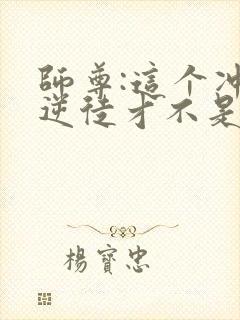 師尊:這个冲
逆徒才不是
楊寶忠